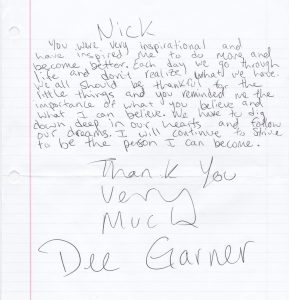 Nick
You were very inspirational and
have inspired me to do more and
become better. Each day we go through
life and don't realize what we have.
We all should be thankful for the
little things and you reminded me the
importance of what you believe and
what I can believe. We have to dig
down deep in our hearts and follow
our dreams. I will continue to strive
to be the person I can become.
Thank You
Very
Much
Dee Garner